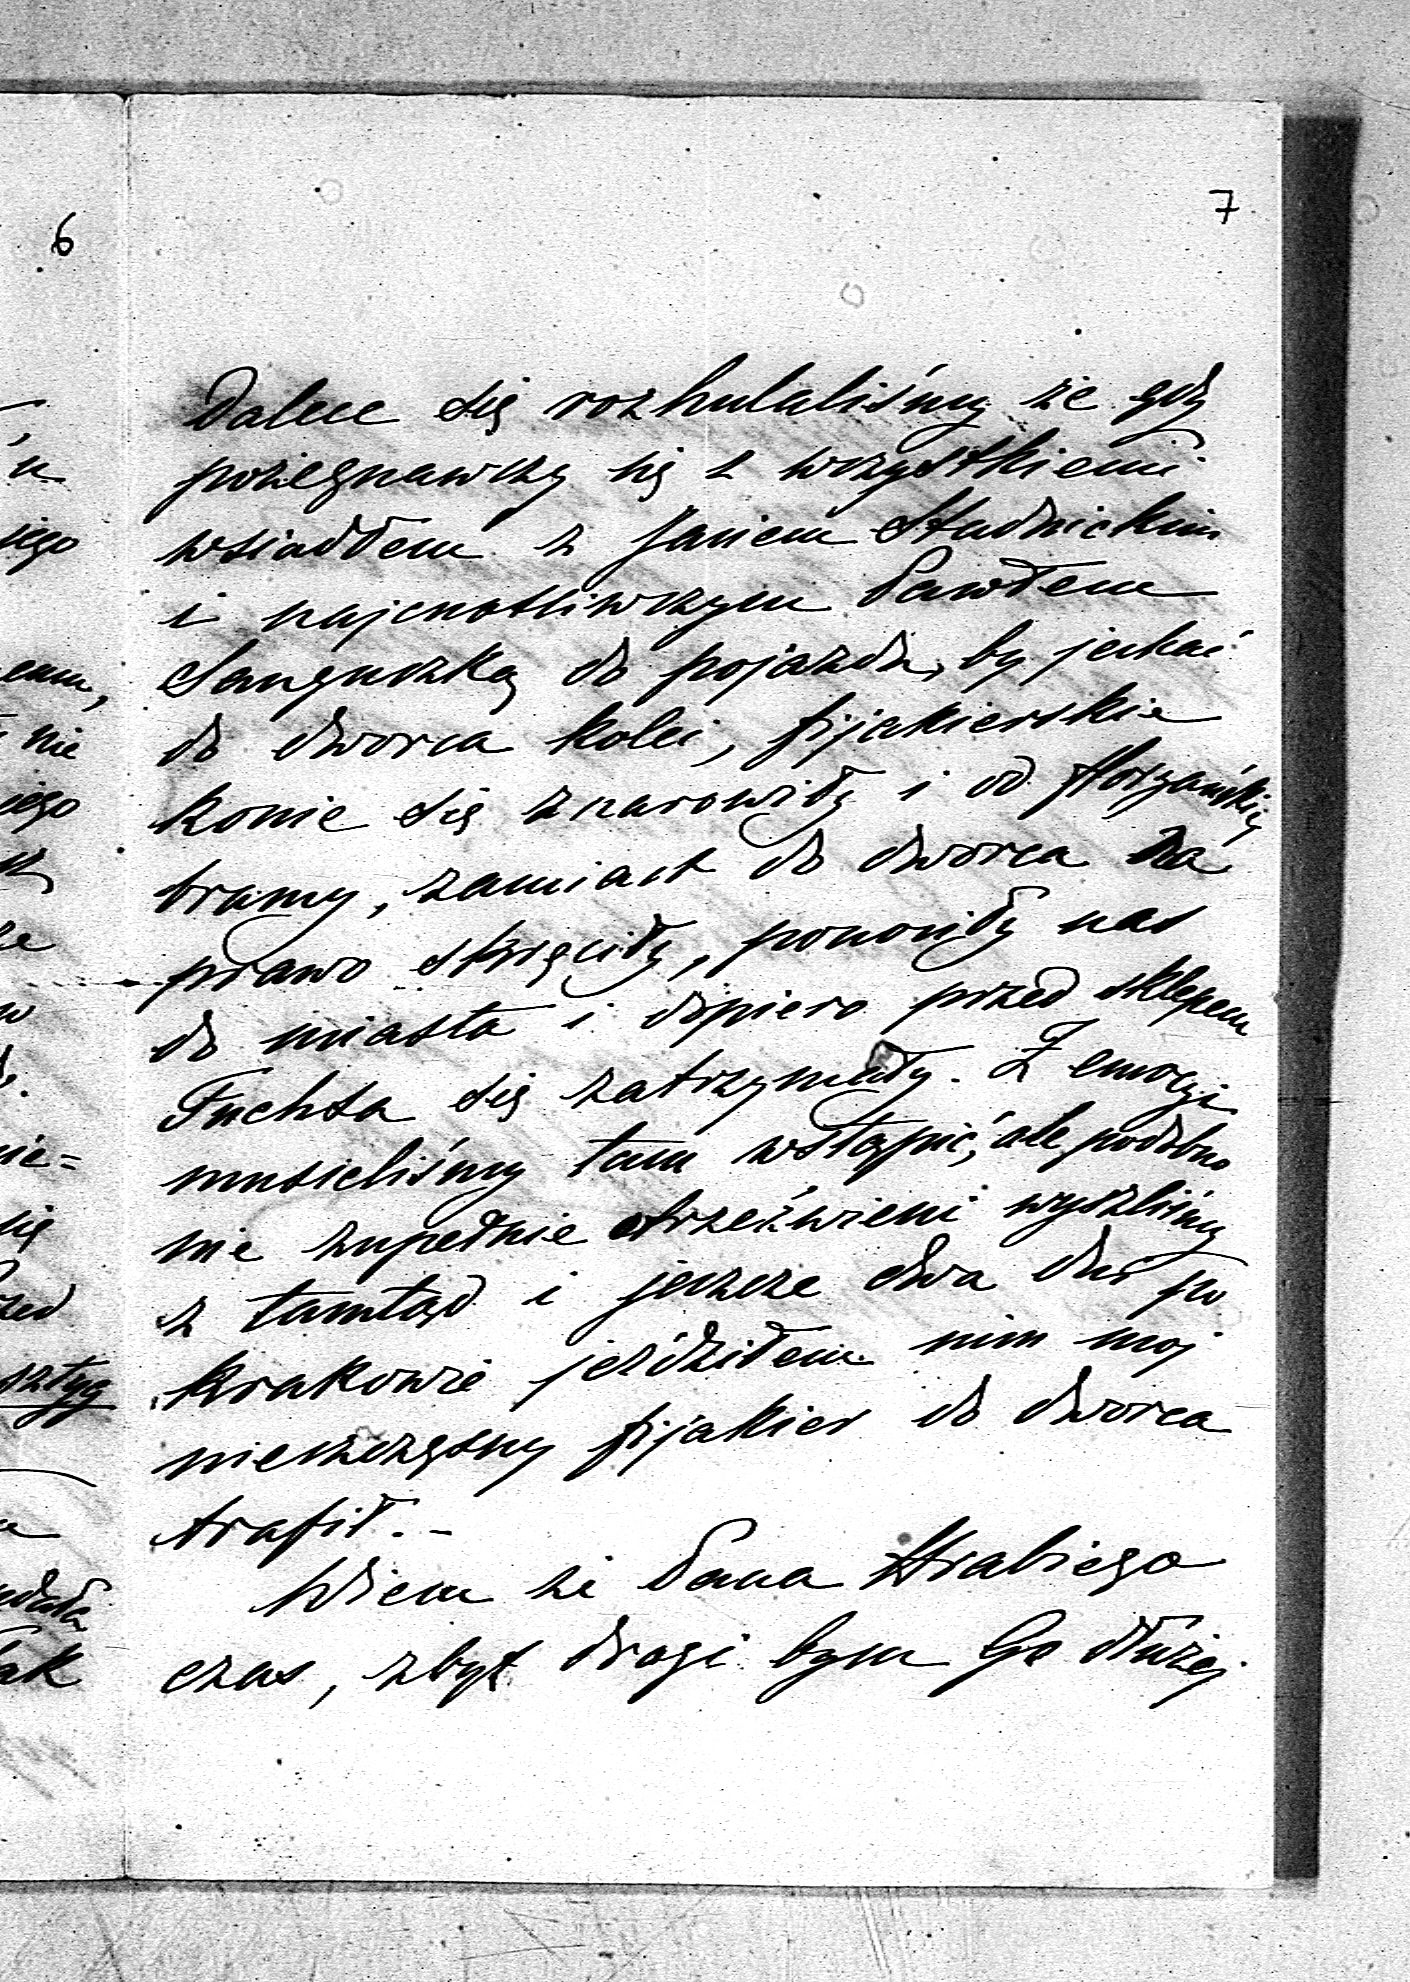 7
Dalece się rozhulaliśmy że gdy
pożegnawszy się z wszystkiemi
wsiadłem z Janem Stadnickim
i najcnotliwszym Pawłem
Sanguszką do pojazdu, by jechać
do dworca kolei, fijakierskie
konie się znarowiły i od Floryańskiej
bramy, zamiast do dworca na
prawo skręciły, ponosiły nas
do miasta i dopiero przed sklepem
Fuchsa się zatrzymały. Z emocyi
musieliśmy tam wstąpić, ale podobno
nie zupełnie otrzeźwieni wyszliśmy
z tamtąd i jeszcze dwa dni po
Krakowie jeździłem nim moj
nieszczęsny fijakier do dworca
trafił. -
Wiem że Pana Hrabiego
czas, zbyt drogi bym Go dłużej
6
nie
sztyg